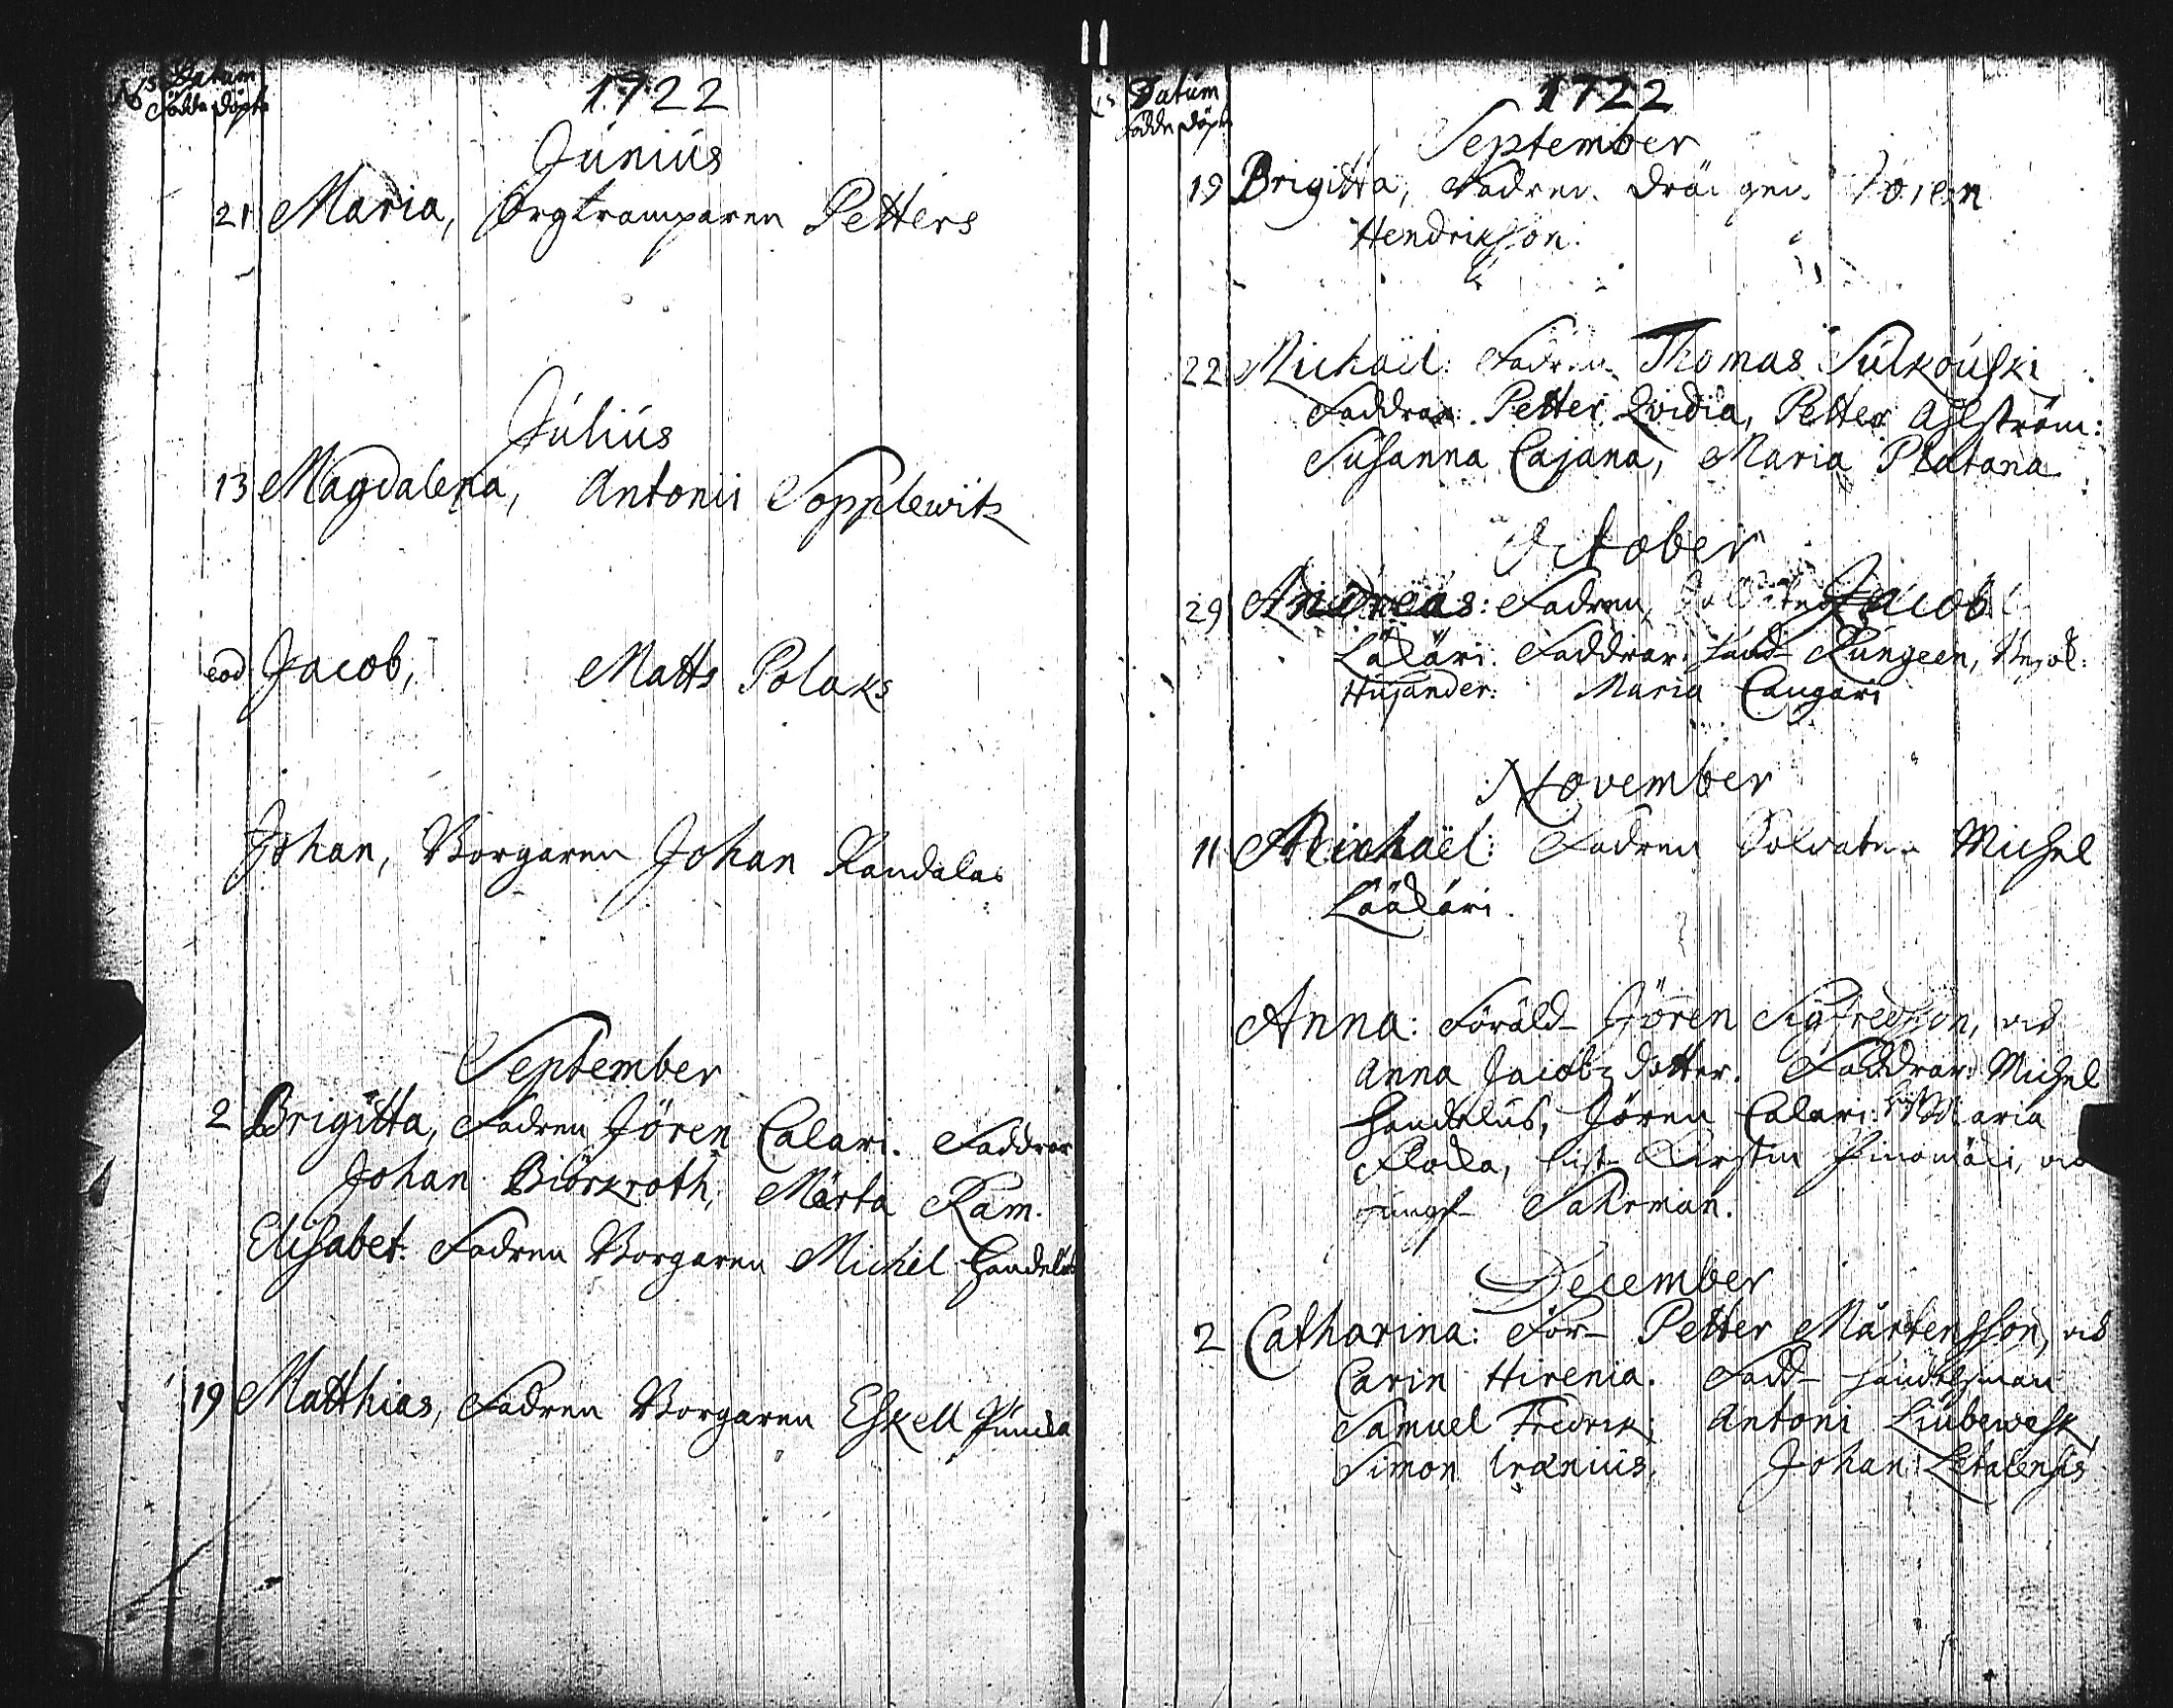 No Datum
födde döpte
1722
Junius
21 Maria, Orgtramparen Petters
Julius
13 Magdalena, Antonii Sopplewitz
eod Jacob, Matts Polaks
Johan, Borgaren Johan Kandalas
September
2 Brigitta, Fadren Jören Calari. Faddrar
Johan Biörkroth, Märta Ram.
Elisabet: Fadren Borgaren Michel
19 Matthias, Fadren Borgaren Eskell
Datum
födde döpte
1722
September
19 Brigitta, Fadren. Drängen Jören
Hendriksson.
22 Michaël: Fadren Thomas Sulkouski
Faddrar: Petter Qvidia, Petter Ahlström:
Susanna Cajana, Maria Platana
October
29 Andreas: Fadren, Jacob
Lääläri. Faddrar:
Hujander: Maria Cangari
November
11 Michaël: Fadren Soldaten Michel
Lääläri.
Anna: Föräld- Jören Sigfredson, och
Anna Jacobz dotter. Faddrar: Michel
Jören Calari: Maria
hust- Kirstin och
jungf- Sahrman.
December
2 Catharina: För- Petter Mårtensson, och
Carin Hirenia. Fadd- handelsman
Samuel Fredrik, Antoni Liubewesk,
Simon Uranius, Johan Letalensis